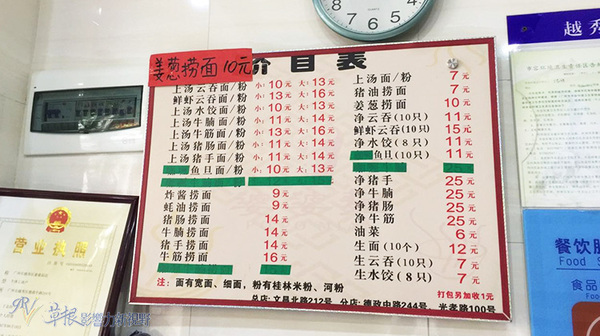 越秀
姜葱捞面10元
价目表
上汤云吞面/粉 小:10元 大:13元
鲜虾云吞面/粉 小:13元 大:16元
上汤水饺面/粉 小:10元 大:13元
上汤牛腩面/粉 小:11元 大:14元
上汤牛筋面/粉 小:13元 大:16元
上汤猪肠面/粉 小:11元 大:14元
上汤猪手面/粉 小:11元 大:14元
鱼旦面/粉 小:10元 大:13元
炸酱捞面 9元
蚝油捞面 9元
猪肠捞面 14元
牛腩捞面 14元
猪手捞面 14元
牛筋捞面 16元
上汤面/粉 7元
猪油捞面 7元
姜葱捞面 10元
净云吞(10只) 11元
鲜虾云吞(10只) 15元
净水饺(8只) 11元
鱼旦(10只) 11元
净猪手 25元
净牛腩 25元
净猪肠 25元
净牛筋 25元
油菜 6元
生面(10个) 12元
生云吞(10只) 7元
生水饺(8只) 7元
注:面有宽面、细面,粉有桂林米粉、河粉
打包另加收1元
总店:文昌北路212号 分店:德政中路244号、光孝路100号
营业执照
餐饮服
Food S
食品
Food
草根影響力新視野